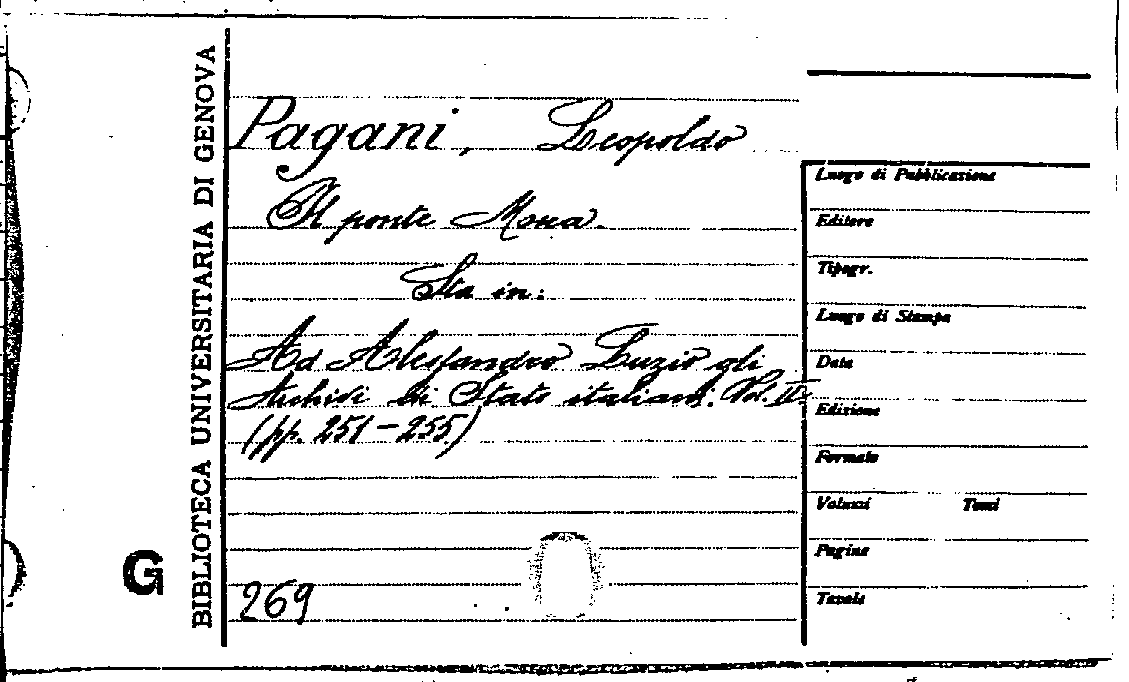 BIBLIOTECA UNIVERSITARIA DI GENOVA
G
Pagani, Leopoldo
Il ponte Mona.
Sta in:
Ad Alessandro Luzio gli
Archivi di Stato italiani. Vol. II.
(pp. 251-255)
269
Luogo di Pubblicazione
Editore
Tipogr.
Luogo di Stampa
Data
Edizione
Formato
Volumi Tomi
Pagine
Tavole